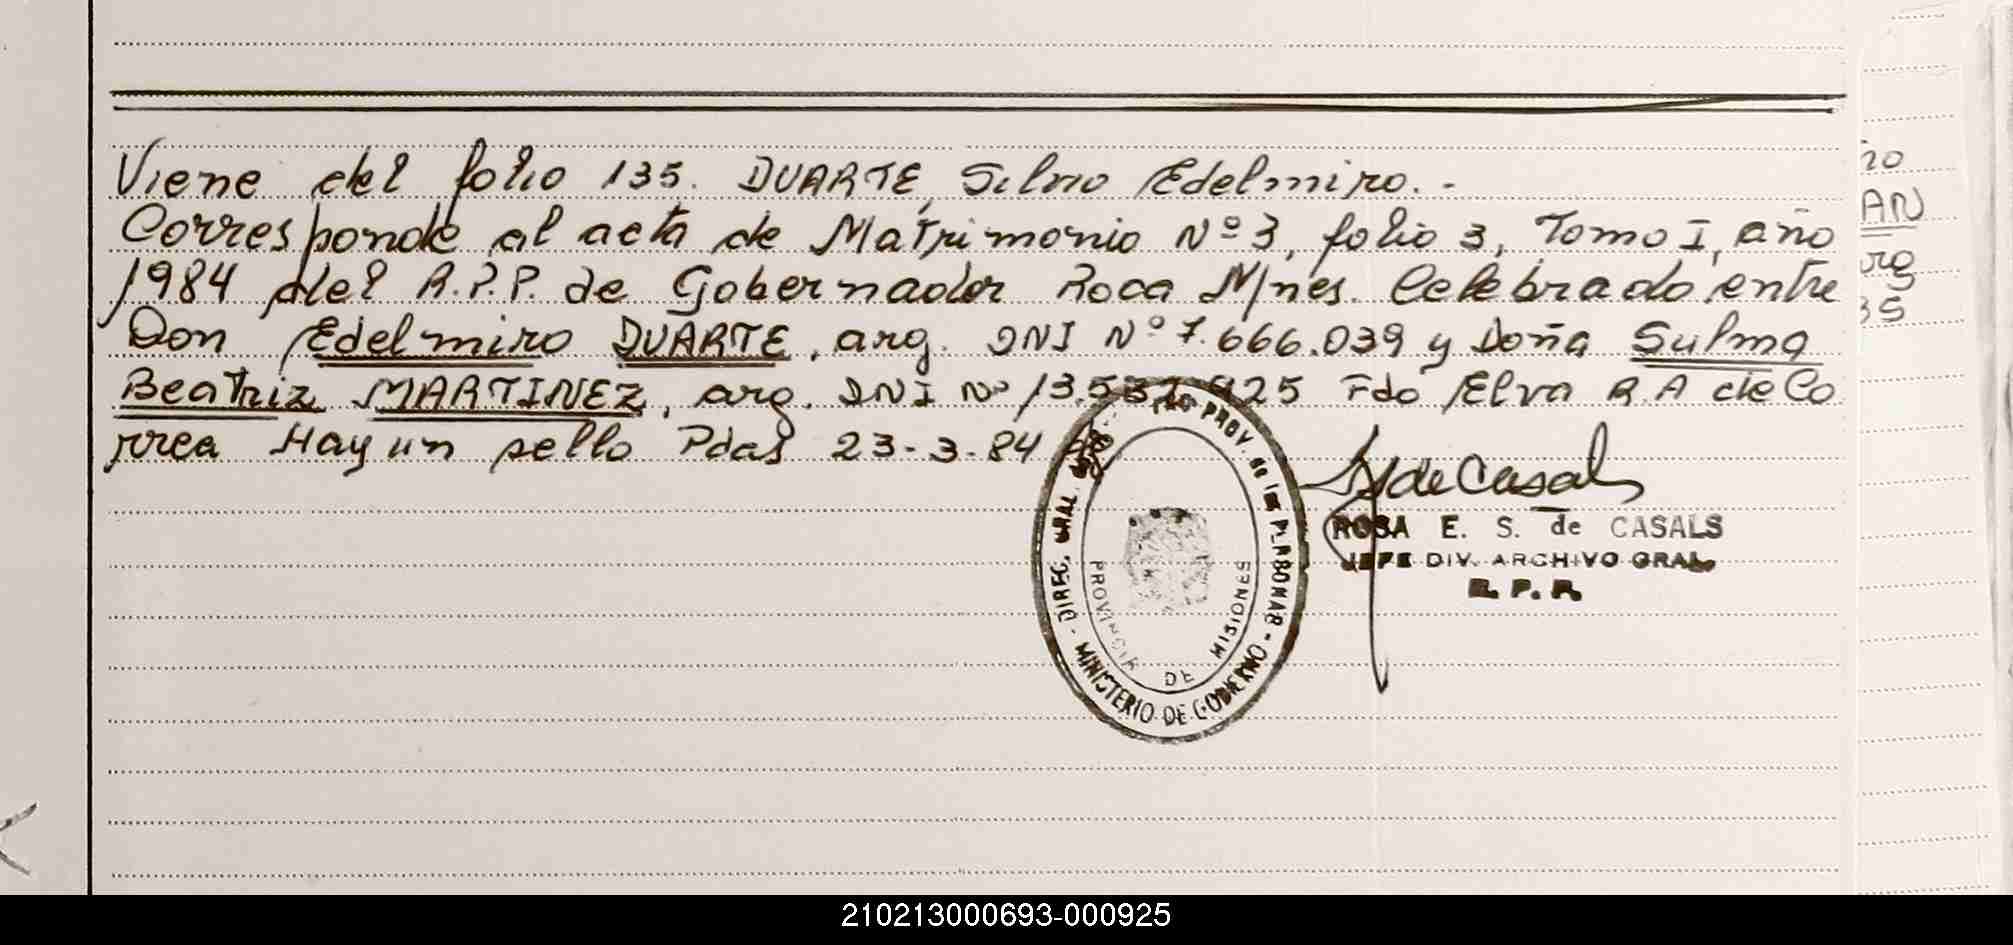 Viene del folio 135. DUARTE, Silvio Edelmiro. -
Corresponde al acta de Matrimonio Nº 3, folio 3, Tomo I, año
1984 del R.P.P. de Gobernador Roca Mnes. Celebrado entre
Don Edelmiro DUARTE, arg. DNI Nº 7.666.039 y Doña Sulma
Beatriz MARTINEZ, arg. DNI Nº 925 Fdo Elva R.A de Co
rrea Hay un sello Pdas 23-3-84
de Casals
ROSA E. S. de CASALS
JEFE DIV. ARCHIVO GRAL
R. P. P.
DIREC. GRAL. PROV. de las PERSONAS - MINISTERIO DE GOBIERNO -
PROVINCIA DE MISIONES
no
AN
arg
35
210213000693-000925